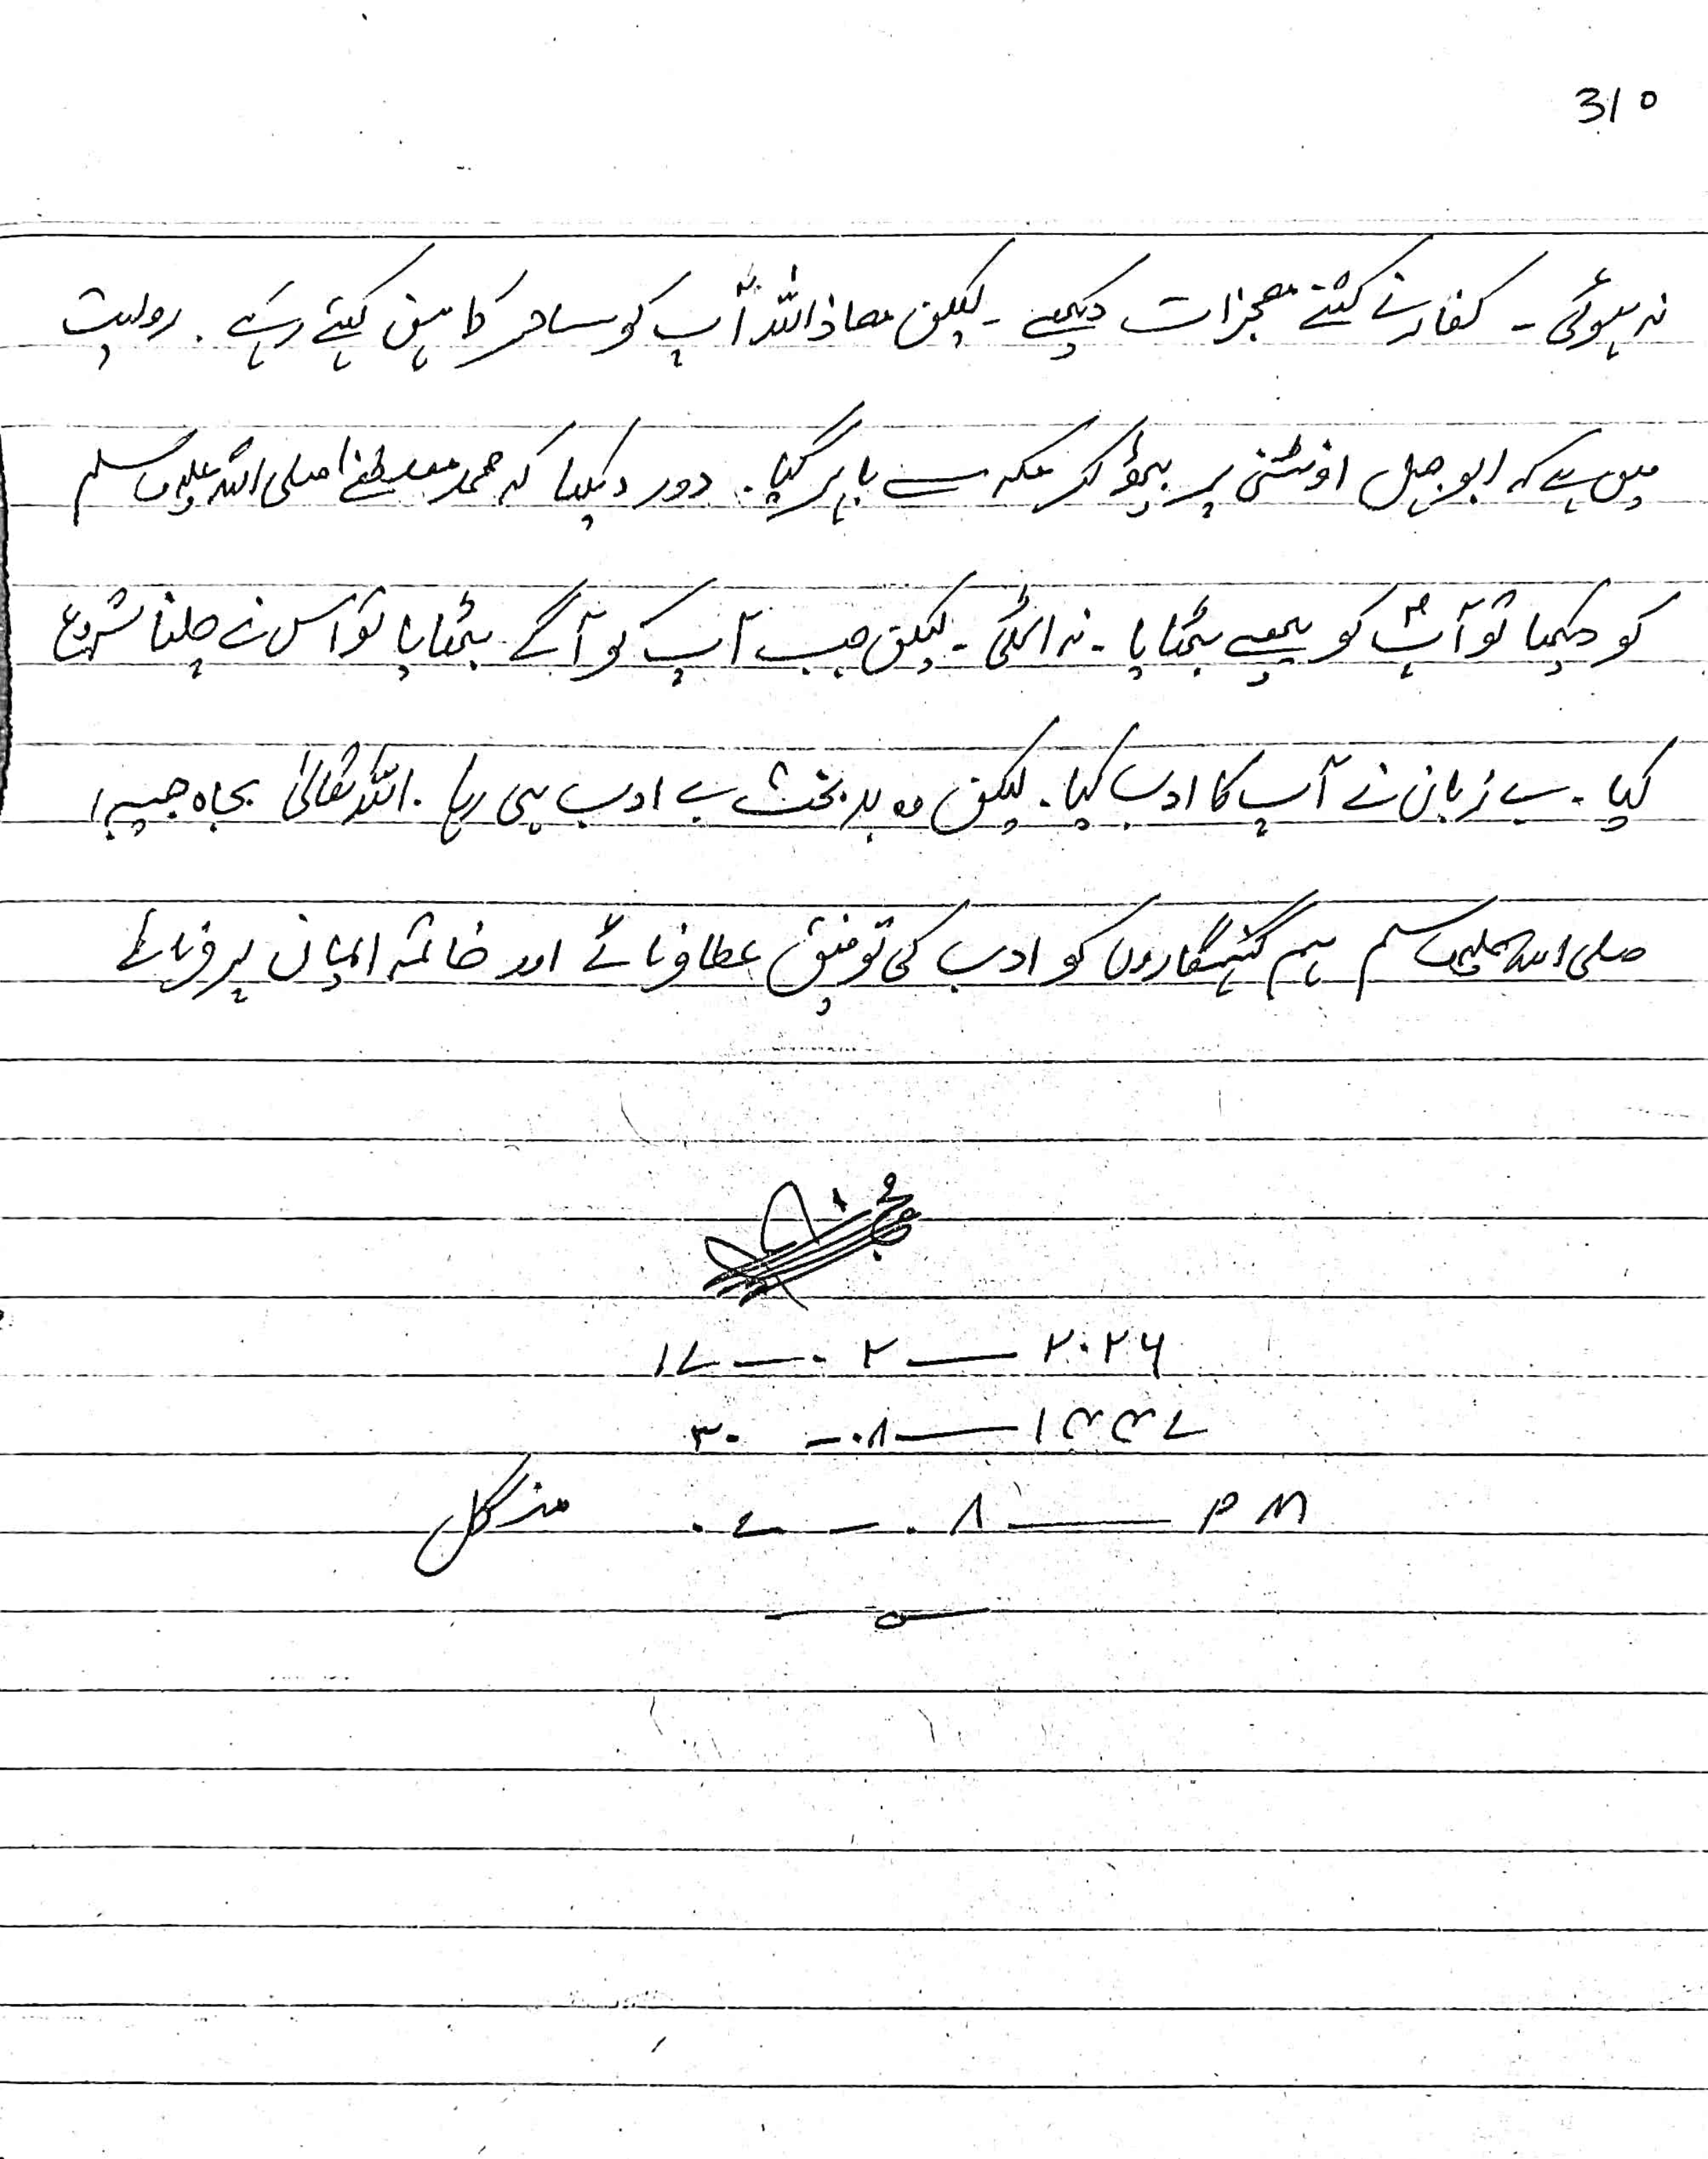 310
نہ ہوئی ۔ کفار نے کتنے معجزات دیکھے ۔ لیکن معاذ اللہ آپ کو ساحر کاہن کہتے رہے ۔ روایت
میں ہے کہ ابو جہل اونٹنی پر بیٹھ کر مکہ سے باہر گیا ۔ دور دیکھا کہ محمد مصطفےٰ صلی اللہ علیہ وسلم
کو دیکھا تو آپؐ کو پیچھے بٹھایا ۔ نہ اٹھی ۔ لیکن جب آپ کو آگے بٹھایا تو اس نے چلنا شروع
کیا ۔ بے زبان نے آپ کا ادب کیا ۔ لیکن وہ بدبخت بے ادب ہی رہا ۔ اللہ تعالیٰ بجاہ حبیبہ
صلی اللہ علیہ وسلم ہم گنہگاروں کو ادب کی توفیق عطا فرمائے اور خاتمہ ایمان پر فرمائے
۱۷ — ۰۲ — ۲۰۲۶
۳۰ — ۰۸ — ۱۴۴۷
۰۷ — ۰۸ — PM منگل